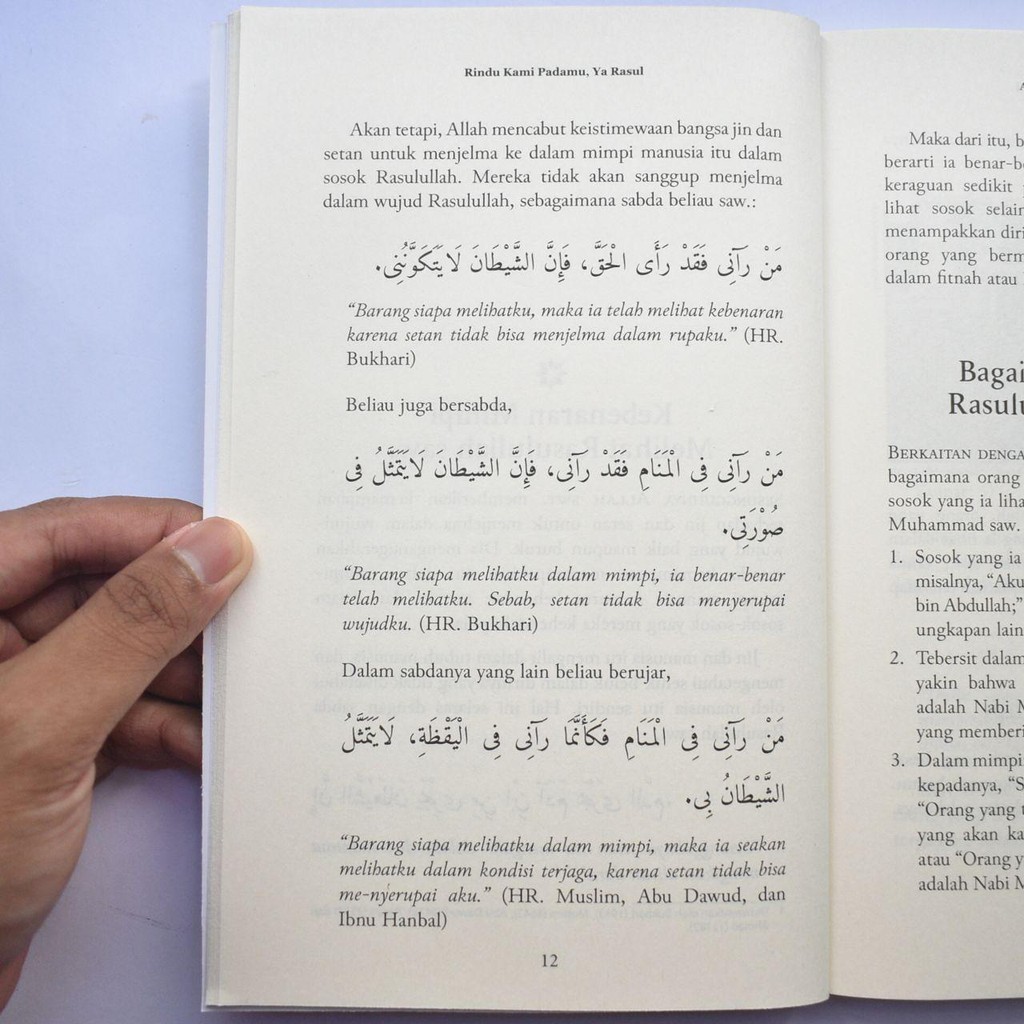 Rindu Kami Padamu, Ya Rasul
Akan tetapi, Allah mencabut keistimewaan bangsa jin dan
setan untuk menjelma ke dalam mimpi manusia itu dalam
sosok Rasulullah. Mereka tidak akan sanggup menjelma
dalam wujud Rasulullah, sebagaimana sabda beliau saw.:
مَنْ رَآنِى فَقَدْ رَأَى الْحَقَّ، فَإِنَّ الشَّيْطَانَ لَايَتَكَوَّنُنِى.
“Barang siapa melihatku, maka ia telah melihat kebenaran
karena setan tidak bisa menjelma dalam rupaku.” (HR.
Bukhari)
Beliau juga bersabda,
مَنْ رَآنِى فِى الْمَنَامِ فَقَدْ رَآنِى، فَإِنَّ الشَّيْطَانَ لَايَتَمَثَّلُ فِى
صُوْرَتِى.
“Barang siapa melihatku dalam mimpi, ia benar-benar
telah melihatku. Sebab, setan tidak bisa menyerupai
wujudku. (HR. Bukhari)
Dalam sabdanya yang lain beliau berujar,
مَنْ رَآنِى فِى الْمَنَامِ فَكَأَنَّمَا رَآنِى فِى الْيَقْظَةِ، لَايَتَمَثَّلُ
الشَّيْطَانُ بِى.
“Barang siapa melihatku dalam mimpi, maka ia seakan
melihatku dalam kondisi terjaga, karena setan tidak bisa
me-nyerupai aku.” (HR. Muslim, Abu Dawud, dan
Ibnu Hanbal)
12
Maka dari itu, b
berarti ia benar-b
keraguan sedikit
lihat sosok selain
menampakkan diri
orang yang berm
dalam fitnah atau
Bagai
Rasulu
BERKAITAN DENGA
bagaimana orang
sosok yang ia liha
Muhammad saw.
1. Sosok yang ia
misalnya, “Aku
bin Abdullah;”
ungkapan lain
2. Tebersit dalam
yakin bahwa
adalah Nabi M
yang memberi
3. Dalam mimpi
kepadanya, “S
“Orang yang
yang akan ka
atau “Orang y
adalah Nabi M